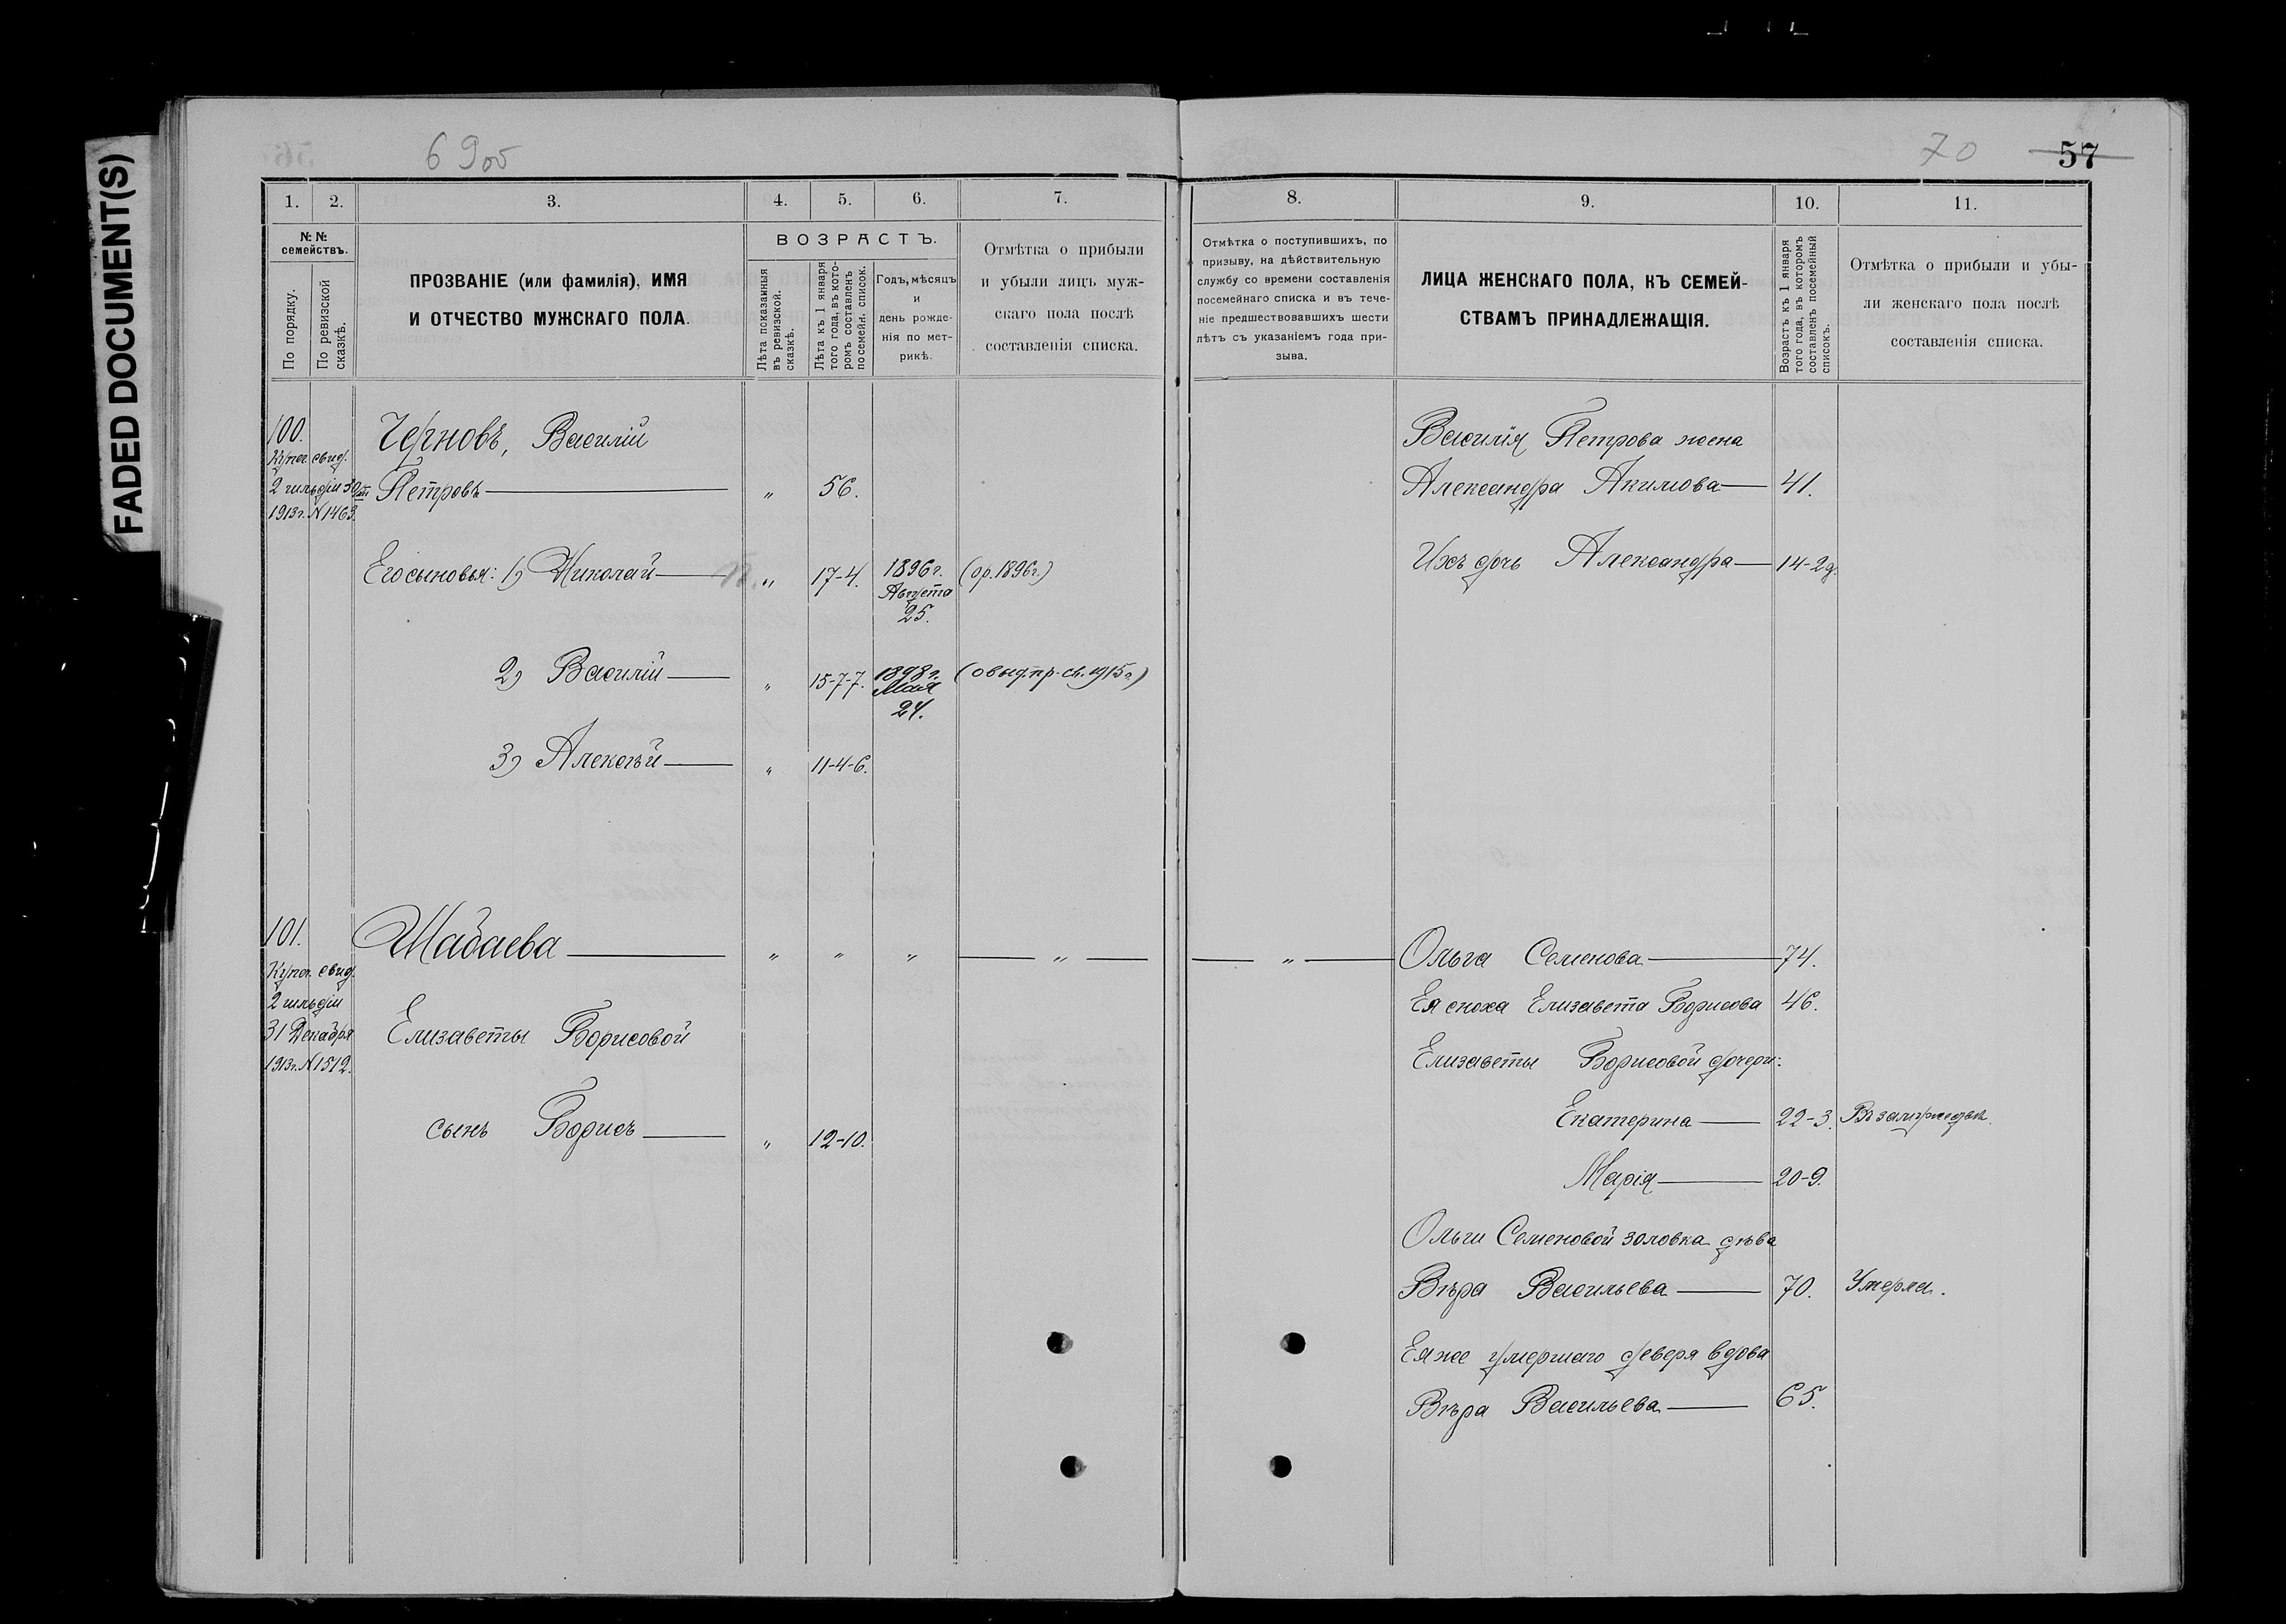 FADED DOCUMENT(S)
69 об
70
57
1.
2.
3.
4.
5.
6.
7.
№ №
семействъ.
По порядку.
По ревизской
сказкѣ.
ПРОЗВАНІЕ (или фамилія), ИМЯ
И ОТЧЕСТВО МУЖСКАГО ПОЛА.
ВОЗРАСТЪ.
Лѣта показанныя
въ ревизской.
сказкѣ.
Лѣта къ 1 января
того года, въ кото-
ромъ составленъ
посемейн. список.
Годъ, мѣсяцъ
и
день рожде-
нія по мет-
рикѣ.
Отмѣтка о прибыли
и убыли лицъ муж-
скаго пола послѣ
составленія списка.
100.
Купеч. свид.
2 гильдіи 30
1913г. N 1463.
Черновъ, Василій
Петровъ „ 56.
Его сыновья: 1) Николай „ 17-4. 1896 г. (ор. 1896 г.)
Августа
25.
2) Василій „ 15-7-7. 1898 г. (о выд. пр. св. 1915 г)
Мая
24.
3) Алексѣй „ 11-4-6.
101.
Купеч. свид.
2 гильдіи
31 Декабря
1913г. N 1512.
Шабаева „ „ „ „
Елизаветы Борисовой
сынъ Борисъ „ 12-10.
8.
9.
10.
11.
Отмѣтка о поступившихъ, по
призыву, на дѣйствительную
службу со времени составленія
посемейнаго списка и въ тече-
ніе предшествовавшихъ шести
лѣтъ съ указаніемъ года при-
зыва.
ЛИЦА ЖЕНСКАГО ПОЛА, КЪ СЕМЕЙ-
СТВАМЪ ПРИНАДЛЕЖАЩІЯ.
Возрастъ къ 1 января
того года, въ которомъ
составленъ посемейный
списокъ.
Отмѣтка о прибыли и убы-
ли женскаго пола послѣ
составленія списка.
Василія Петрова жена
Александра Акимова 41.
Ихъ дочь Александра 14-2д.
„ Ольга Семенова 74.
Ея сноха Елизавета Борисова 46.
Елизаветы Борисовой дочери:
Екатерина 22-3. Въ замужествѣ.
Марія 20-9.
Ольги Семеновой золовка дѣва
Вѣра Васильева 70. Умерла.
Ея же умершаго деверя вдова
Вѣра Васильева 65.